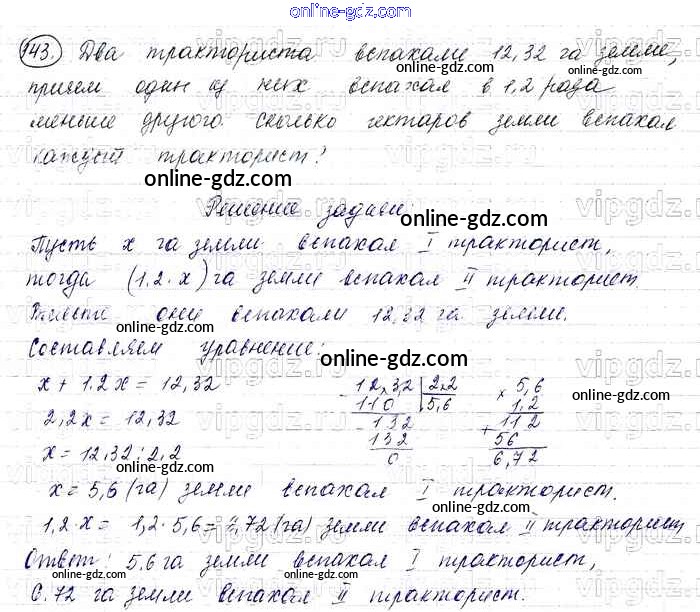 online-gdz.com
143. Два тракториста вспахали 12,32 га земли,
причем один из них вспахал в 1,2 раза
меньше другого. Сколько гектаров земли вспахал
каждый тракторист?
online-gdz.com
Решение задачи:
online-gdz.com
Пусть x га земли вспахал I тракторист,
тогда (1.2·x) га земли вспахал II тракторист.
Вместе они вспахали 12,32 га земли.
online-gdz.com
Составляем уравнение:
online-gdz.com
x + 1.2x = 12,32
2,2x = 12,32
x = 12,32 : 2,2
12,32 | 2,2
110 | 5,6
132
132
0
× 5,6
1,2
+ 112
56
6,72
online-gdz.com
x = 5,6 (га) земли вспахал I тракторист.
1,2·x = 1,2·5,6 = 6,72 (га) земли вспахал II тракторист
online-gdz.com
Ответ: 5,6 га земли вспахал I тракторист,
online-gdz.com
6.72 га земли вспахал II тракторист.
online-gdz.com
vipgdz.com